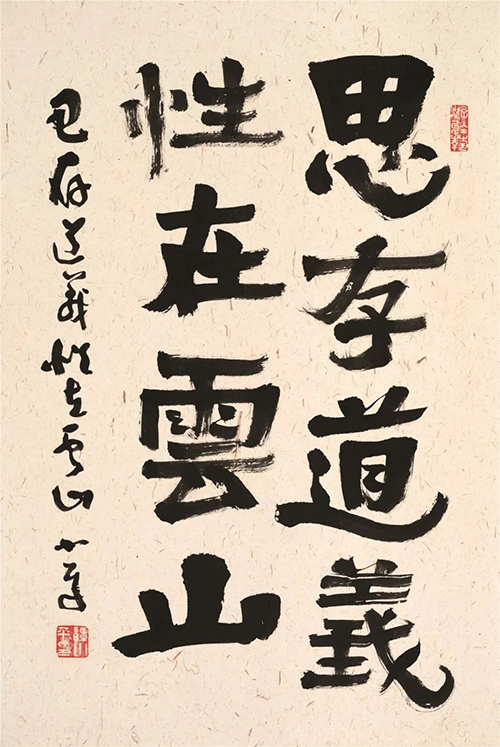 思存道義
性在雲山
思存道義性在雲山